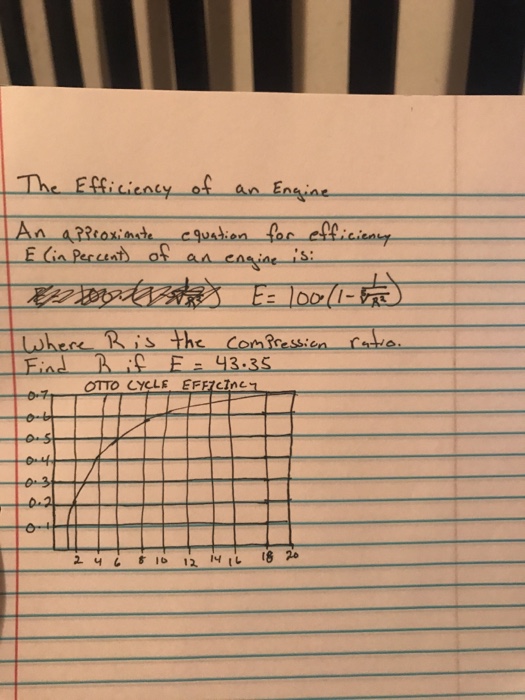 The Efficiency of an Engine
An approximate equation for efficiency
E (in Percent) of an engine is:
E= 100(1-
Where R is the Compression ratio.
Find R if E = 43.35
OTTO CYCLE EFFICINCY
0.7
0.6
0.5
0.4
0.3
0.2
0.1
2 4 6 8 10 12 14 16 18 20